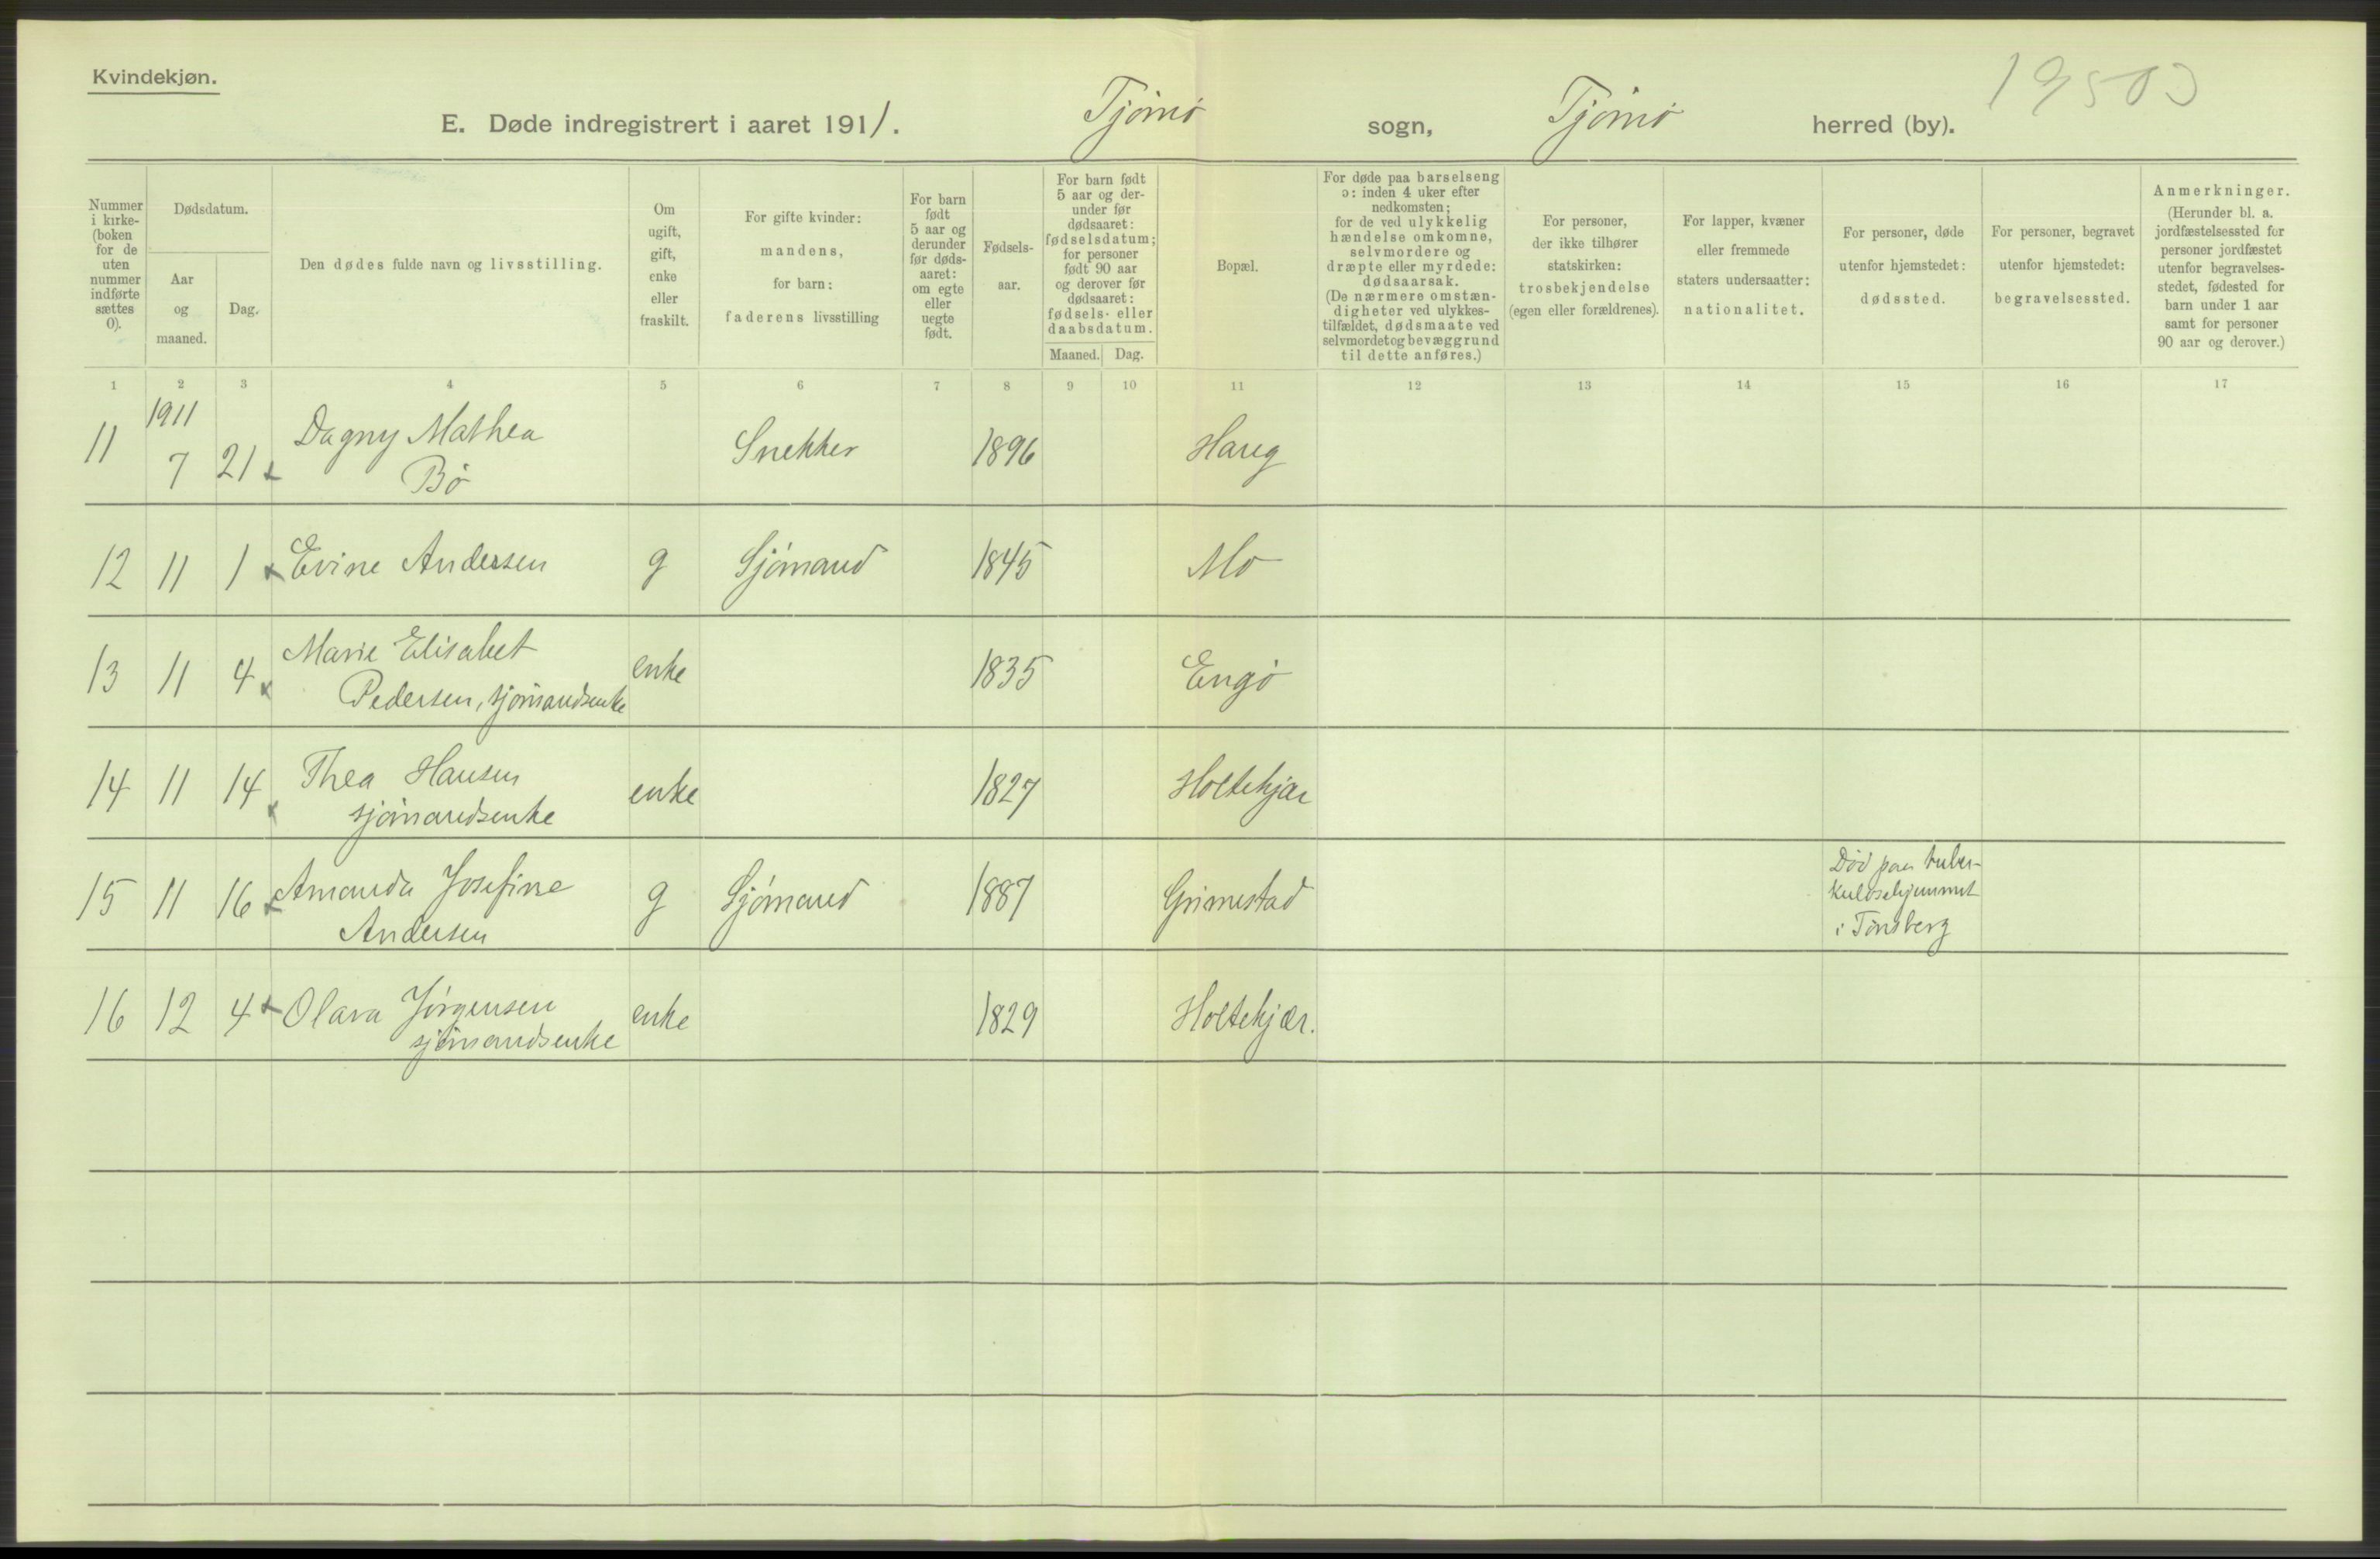 Kvindekjøn.
19503
E. Døde indregistrert i aaret 1911. Tjømø sogn, Tjømø herred (by).
Nummer i kirke- (boken for de uten nummer indførte sættes 0).
Dødsdatum.
Aar og maaned.
Dag.
Den dødes fulde navn og livsstilling.
Om ugift, gift, enke eller fraskilt.
For gifte kvinder: mandens, for barn: faderens livsstilling
For barn født 5 aar og derunder før døds- aaret: om egte eller uegte født.
Fødsels- aar.
For barn født 5 aar og der- under før dødsaaret: fødselsdatum; for personer født 90 aar og derover før dødsaaret: fødsels- eller daabsdatum.
Maaned. Dag.
Bopæl.
For døde paa barselseng ɔ: inden 4 uker efter nedkomsten; for de ved ulykkelig hændelse omkomne, selvmordere og dræpte eller myrdede: dødsaarsak. (De nærmere omstæn- digheter ved ulykkes- tilfældet, dødsmaate ved selvmordet og bevæggrund til dette anføres.)
For personer, der ikke tilhører statskirken: trosbekjendelse (egen eller forældrenes).
For lapper, kvæner eller fremmede staters undersaatter: nationalitet.
For personer, døde utenfor hjemstedet: dødssted.
For personer, begravet utenfor hjemstedet: begravelsessted.
Anmerkninger. (Herunder bl. a. jordfæstelsessted for personer jordfæstet utenfor begravelses- stedet, fødested for barn under 1 aar samt for personer 90 aar og derover.)
1 2 3 4 5 6 7 8 9 10 11 12 13 14 15 16 17
1911
11 7 21 Dagny Mathea Snekker 1896 Haug
Bø
12 11 1 Evine Andersen g Sjømand 1845 Mo
13 11 4 Marie Elisabet enke 1835 Engø
Pedersen, sjømandsenke
14 11 14 Thea Hansen enke 1827 Holtekjær
sjømandsenke
15 11 16 Amanda Josefine g Sjømand 1887 Grimestad Død paa tuber-
Andersen kulosehjemmet
i Tønsberg
16 12 4 Olava Jørgensen enke 1829 Holtekjær.
sjømandsenke